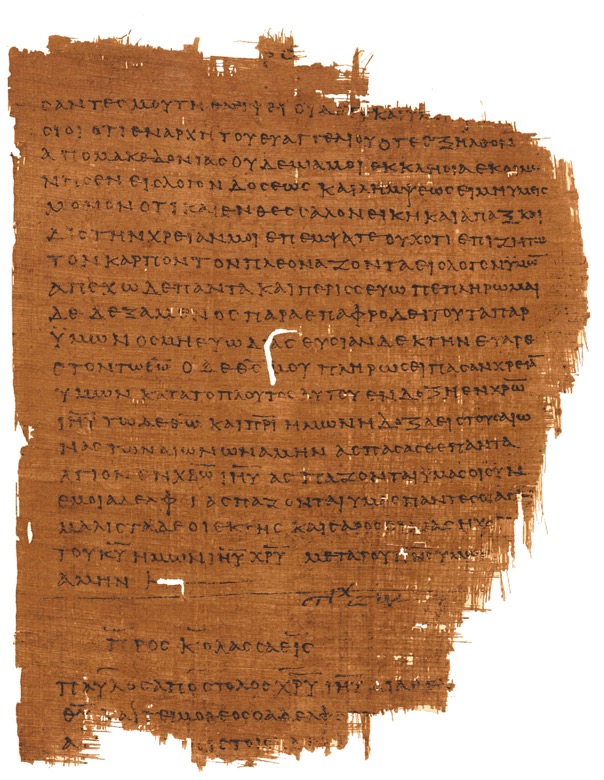 ϹΑΝΤΕϹ ΜΟΥ ΤΗ ΘΛΙΨΕΙ ΚΑΙ
ϹΙΟΙ ΟΤΙ ΕΝ ΑΡΧΗ ΤΟΥ ΕΥΑΓΓΕΛΙΟΥ ΟΤΕ ΕΞΗΛΘΟΝ
ΑΠΟ ΜΑΚΕΔΟΝΙΑϹ ΟΥΔΕΜΙΑ ΜΟΙ ΕΚΚΛΗϹΙΑ ΕΚΟΙΝΩ
ΝΗϹΕΝ ΕΙϹ ΛΟΓΟΝ ΔΟϹΕΩϹ ΚΑΙ ΛΗΜΨΕΩϹ ΕΙ ΜΗ ΥΜΕΙϹ
ΜΟΝΟΝ ΟΤΙ ΚΑΙ ΕΝ ΘΕϹϹΑΛΟΝΕΙΚΗ ΚΑΙ ΑΠΑΞ ΚΑΙ
ΔΙϹ ΤΗΝ ΧΡΕΙΑΝ ΜΟΙ ΕΠΕΜΨΑΤΕ ΟΥΧ ΟΤΙ ΕΠΙΖΗΤΩ
ΤΟΝ ΚΑΡΠΟΝ ΤΟΝ ΠΛΕΟΝΑΖΟΝΤΑ ΕΙϹ ΛΟΓΟΝ ΥΜΩ̅
ΑΠΕΧΩ ΔΕ ΠΑΝΤΑ ΚΑΙ ΠΕΡΙϹϹΕΥΩ ΠΕΠΛΗΡΩΜΑΙ
ΔΕ ΔΕΞΑΜΕΝΟϹ ΠΑΡΑ ΕΠΑΦΡΟΔΕΙΤΟΥ ΤΑ ΠΑΡ
ΫΜΩΝ ΟϹΜΗ ΕΥΩΔΙΑϹ ΘΥϹΙΑΝ ΔΕΚΤΗΝ ΕΥΑΡΕ
ϹΤΟΝ ΤΩ Θ̅Ω̅ Ο ΔΕ Θ̅Ϲ̅ ΜΟΥ ΠΛΗΡΩϹΕΙ ΠΑϹΑΝ ΧΡΕΙΑ̅
ΥΜΩΝ ΚΑΤΑ ΤΟ ΠΛΟΥΤΟϹ ΑΥΤΟΥ ΕΝ ΔΟΞΗ ΕΝ Χ̅Ρ̅Ω̅
Ι̅Η̅Υ̅ ΤΩ ΔΕ Θ̅Ω̅ ΚΑΙ Π̅Ρ̅Ι̅ ΗΜΩΝ Η ΔΟΞΑ ΕΙϹ ΤΟΥϹ ΑΙΩ
ΝΑϹ ΤΩΝ ΑΙΩΝΩΝ ΑΜΗΝ ΑϹΠΑϹΑϹΘΕ ΠΑΝΤΑ
ΑΓΙΟΝ ΕΝ Χ̅Ρ̅Ω̅ Ι̅Η̅Υ̅ ΑϹΠΑΖΟΝΤΑΙ ΥΜΑϹ ΟΙ ϹΥΝ
ΕΜΟΙ ΑΔΕΛΦΟΙ ΑϹΠΑΖΟΝΤΑΙ ΥΜΑϹ ΠΑΝΤΕϹ ΟΙ
ΜΑΛΙϹΤΑ ΔΕ ΟΙ ΕΚ ΤΗϹ ΚΑΙϹΑΡΟϹ ΟΙΚΙΑϹ Η
ΤΟΥ Κ̅Υ̅ ΗΜΩΝ Ι̅Η̅Υ̅ Χ̅Ρ̅Υ̅ ΜΕΤΑ ΤΟΥ Π̅Ν̅Ϲ̅
ΑΜΗΝ
ΠΡΟϹ ΚΟΛΑϹϹΑΕΙϹ
ΠΑΥΛΟϹ ΑΠΟϹΤΟΛΟϹ Χ̅Ρ̅Υ̅ Ι̅Η̅Υ̅ ΔΙΑ
Θ̅Υ̅ ΚΑΙ ΤΕΙΜΟΘΕΟϹ Ο ΑΔΕΛΦ